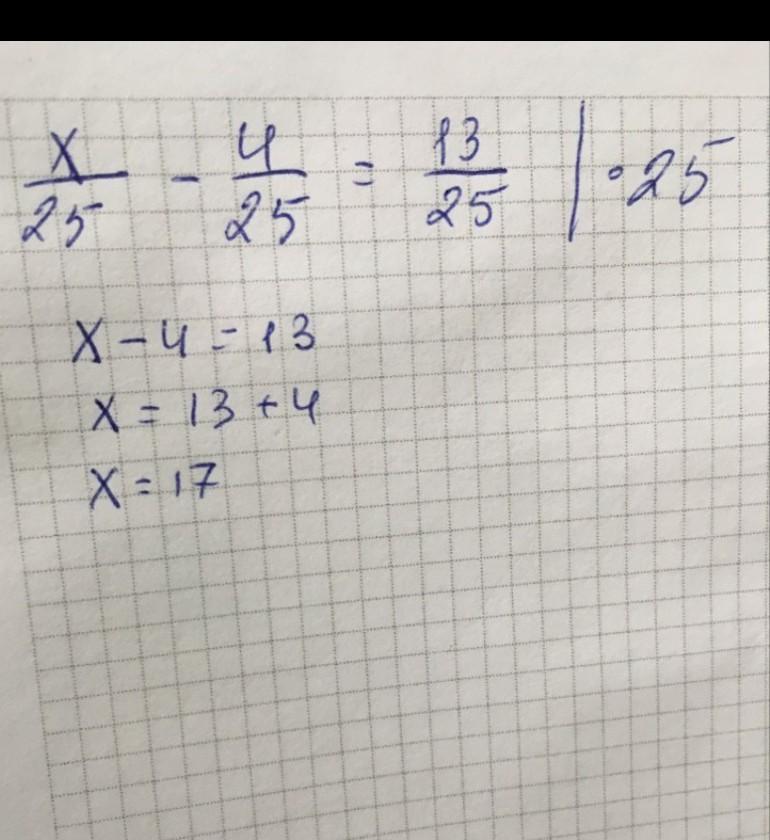 x/25 - 4/25 = 13/25 | · 25
x - 4 = 13
x = 13 + 4
x = 17